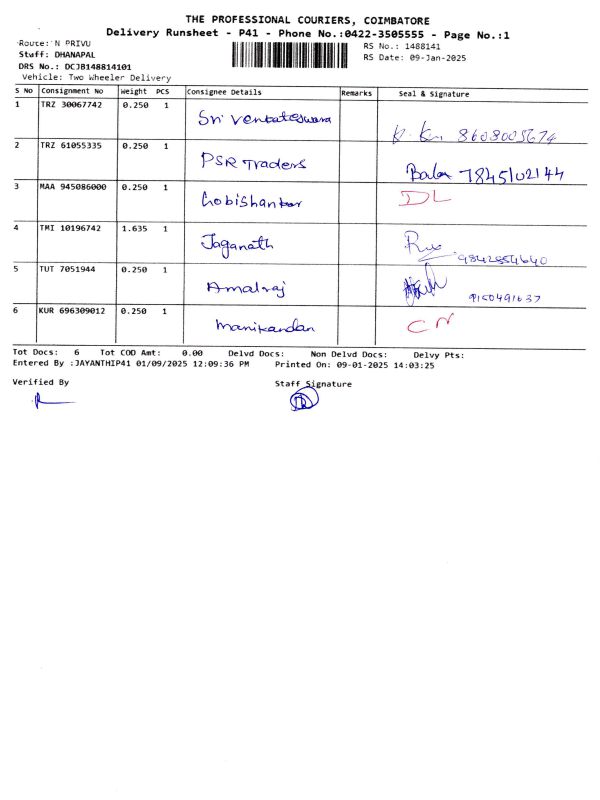 THE PROFESSIONAL COURIERS, COIMBATORE
Delivery Runsheet - P41 - Phone No.:0422-3505555 - Page No.:1
Route: N PRIVU
RS No.: 1488141
Staff: DHANAPAL
RS Date: 09-Jan-2025
DRS No.: DCJB148814101
Vehicle: Two Wheeler Delivery
S No Consignment No Weight PCS Consignee Details Remarks Seal & Signature
1 TRZ 30067742 0.250 1 Sri Venkateswara 8608005674
2 TRZ 61055335 0.250 1 PSR Traders Bala 7845102144
3 MAA 945086000 0.250 1 Gobishankar DL
4 TMI 10196742 1.635 1 Jaganath 9842854640
5 TUT 7051944 0.250 1 Amalraj 9150491637
6 KUR 696309012 0.250 1 Manikandan CN
Tot Docs: 6 Tot COD Amt: 0.00 Delvd Docs: Non Delvd Docs: Delvy Pts:
Entered By :JAYANTHIP41 01/09/2025 12:09:36 PM Printed On: 09-01-2025 14:03:25
Verified By Staff Signature